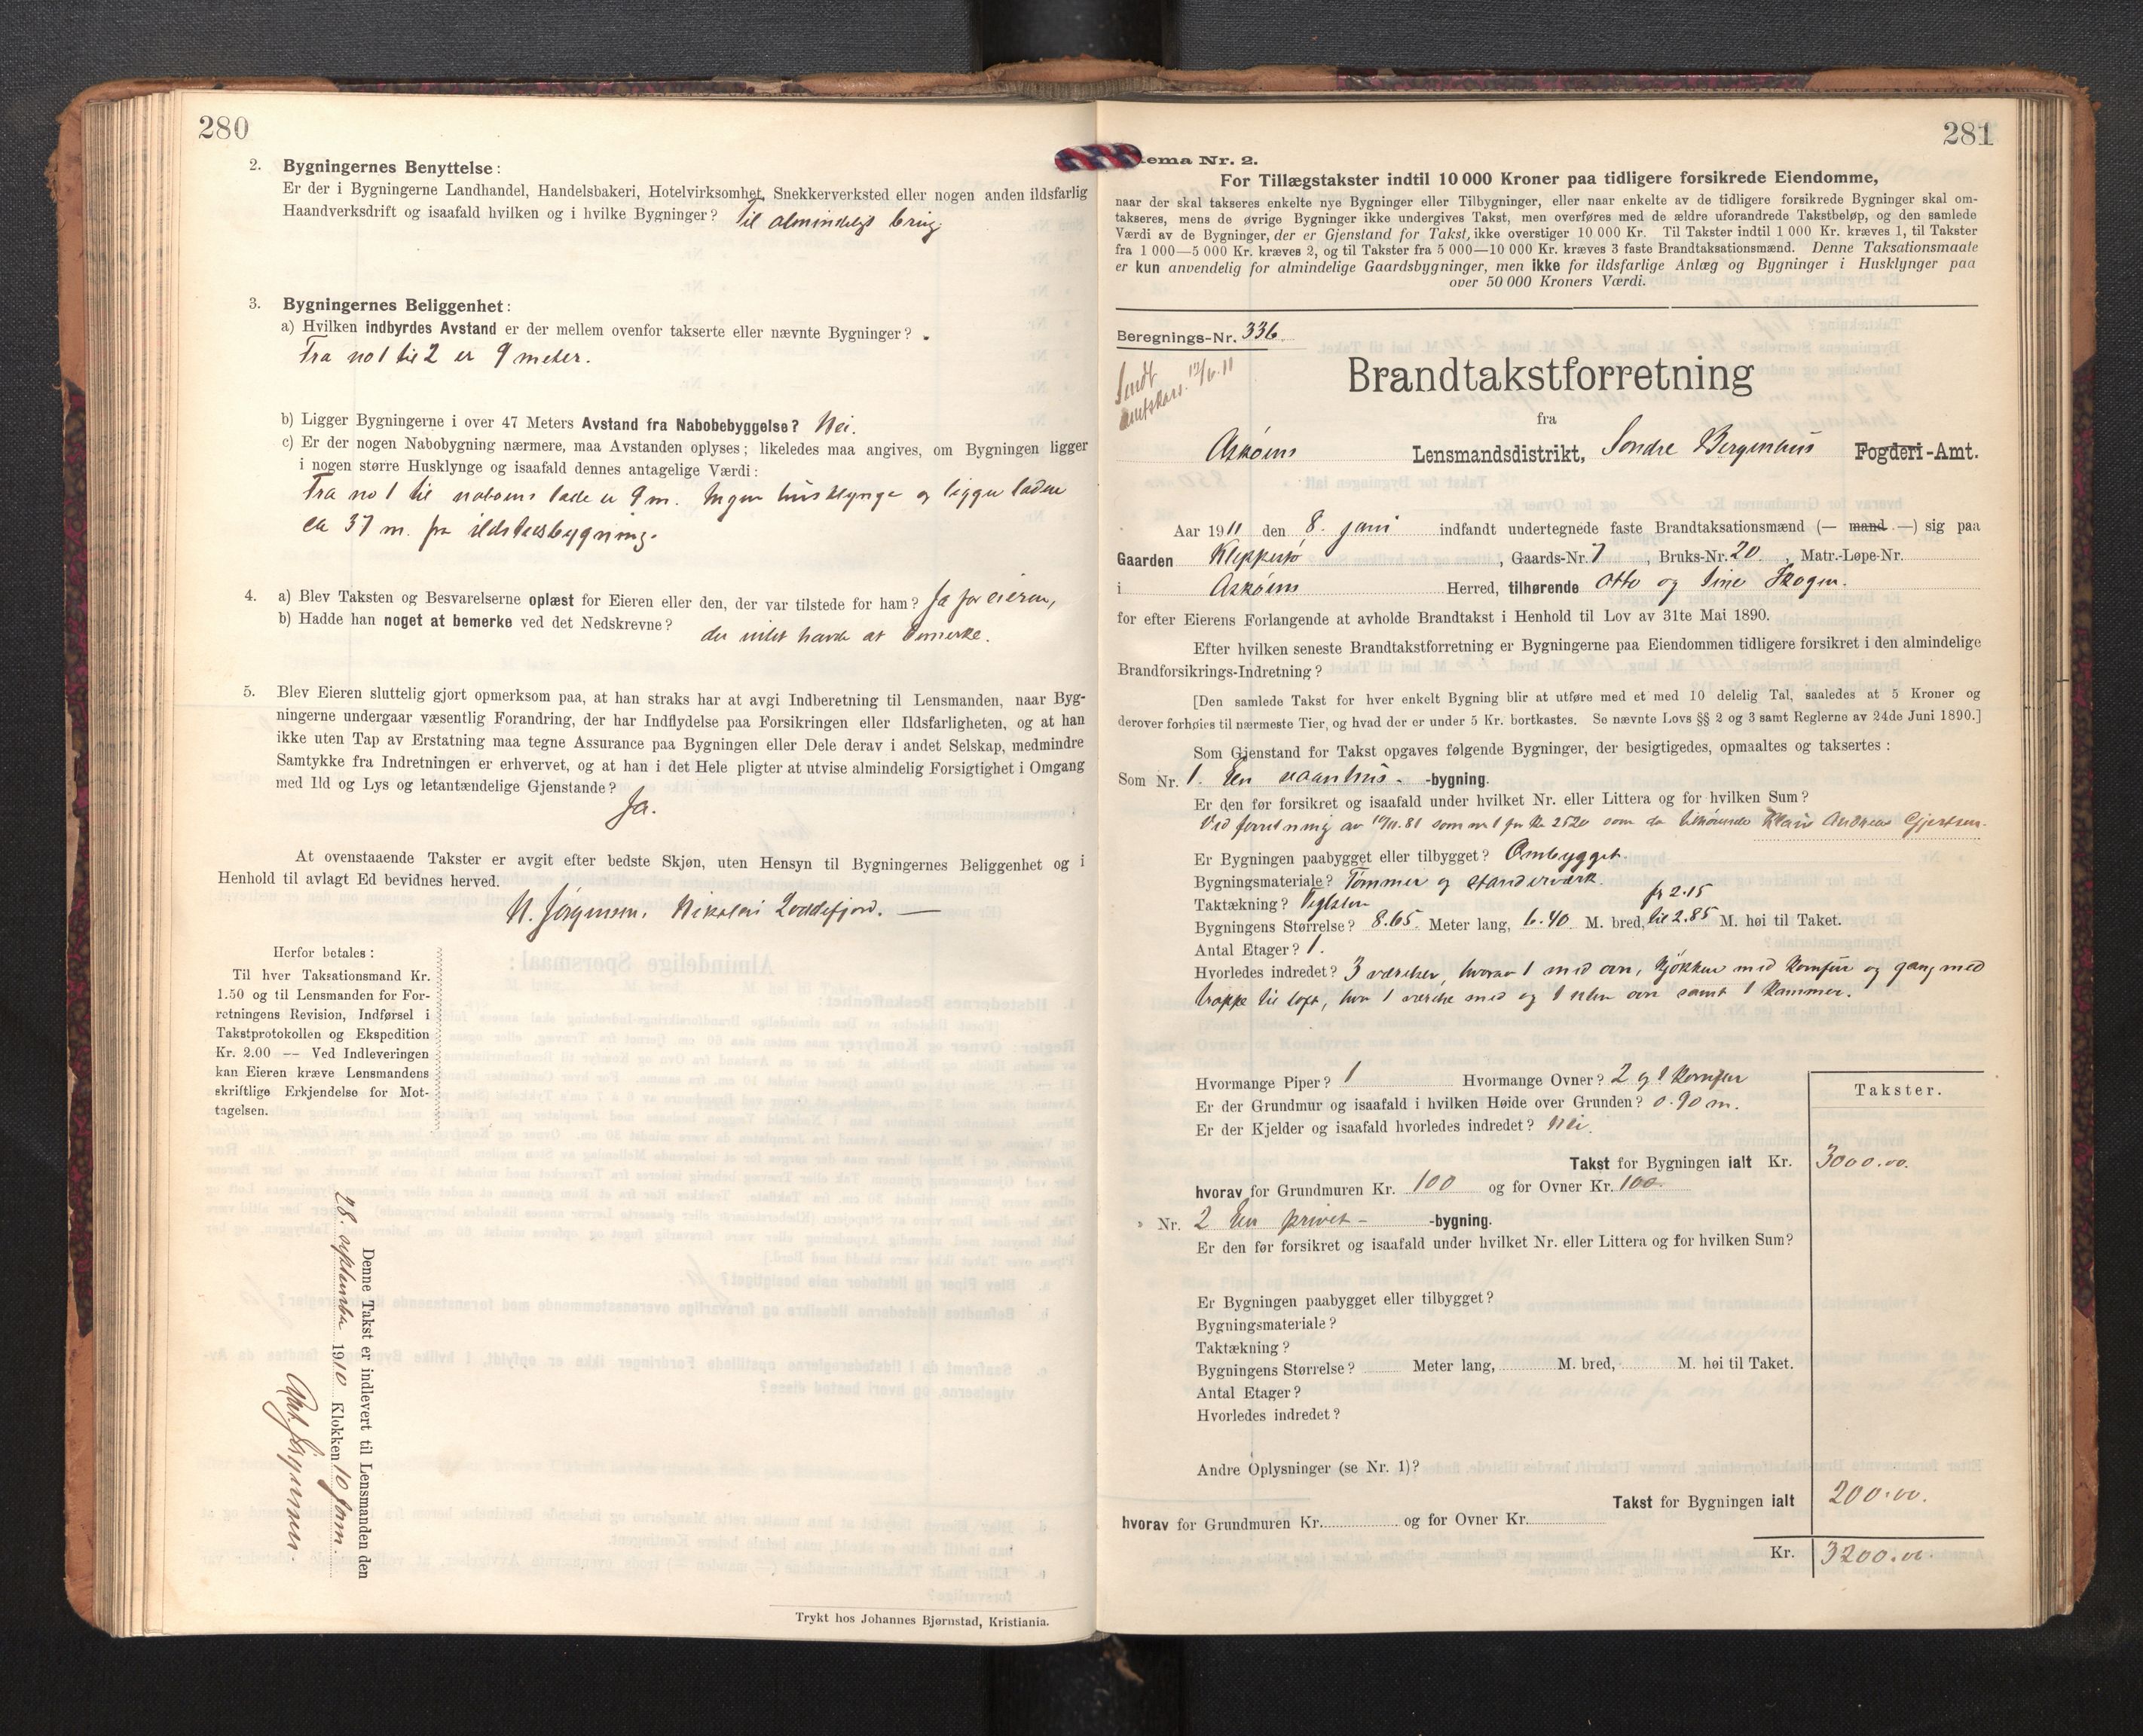 280
2. Bygningernes Benyttelse:
Er der i Bygningerne Landhandel, Handelsbakeri, Hotelvirksomhet, Snekkerverksted eller nogen anden ildsfarlig
Haandverksdrift og isaafald hvilken og i hvilke Bygninger? Til almindeligt brug
3. Bygningernes Beliggenhet:
a) Hvilken indbyrdes Avstand er der mellem ovenfor takserte eller nævnte Bygninger?
Fra no 1 til 2 er 9 meter.
b) Ligger Bygningerne i over 47 Meters Avstand fra Nabobebyggelse? Nei.
c) Er der nogen Nabobygning nærmere, maa Avstanden oplyses; likeledes maa angives, om Bygningen ligger
i nogen større Husklynge og isaafald dennes antagelige Værdi:
Fra no 1 til naboens lade er 9 m. Ingen husklynge og ligger laden
ca 37 m. fra ildstedsbygning.
4. a) Blev Taksten og Besvarelserne oplæst for Eieren eller den, der var tilstede for ham? Ja for eieren,
b) Hadde han noget at bemerke ved det Nedskrevne? der intet havde at bemerke.
5. Blev Eieren sluttelig gjort opmerksom paa, at han straks har at avgi Indberetning til Lensmanden, naar Byg-
ningerne undergaar væsentlig Forandring, der har Indflydelse paa Forsikringen eller Ildsfarligheten, og at han
ikke uten Tap av Erstatning maa tegne Assurance paa Bygningen eller Dele derav i andet Selskap, medmindre
Samtykke fra Indretningen er erhvervet, og at han i det Hele pligter at utvise almindelig Forsigtighet i Omgang
med Ild og Lys og letantændelige Gjenstande?
Ja.
At ovenstaaende Takster er avgit efter bedste Skjøn, uten Hensyn til Bygningernes Beliggenhet og i
Henhold til avlagt Ed bevidnes herved.
N. Jørgensen. Nikolai Loddefjord.
Herfor betales:
Til hver Taksationsmand Kr.
1.50 og til Lensmanden for For-
retningens Revision, Indførsel i
Takstprotokollen og Ekspedition
Kr. 2.00 — Ved Indleveringen
kan Eieren kræve Lensmandens
skriftlige Erkjendelse for Mot-
tagelsen.
Denne Takst er indlevert til Lensmanden den
28. september 1910 Klokken 10 form.
Jørgensen
Trykt hos Johannes Bjørnstad, Kristiania.
281
ema Nr. 2.
For Tillægstakster indtil 10 000 Kroner paa tidligere forsikrede Eiendomme,
naar der skal takseres enkelte nye Bygninger eller Tilbygninger, eller naar enkelte av de tidligere forsikrede Bygninger skal om-
takseres, mens de øvrige Bygninger ikke undergives Takst, men overføres med de ældre uforandrede Takstbeløp, og den samlede
Værdi av de Bygninger, der er Gjenstand for Takst, ikke overstiger 10 000 Kr. Til Takster indtil 1 000 Kr. kræves 1, til Takster
fra 1 000—5 000 Kr. kræves 2, og til Takster fra 5 000—10 000 Kr. kræves 3 faste Brandtaksationsmænd. Denne Taksationsmaate
er kun anvendelig for almindelige Gaardsbygninger, men ikke for ildsfarlige Anlæg og Bygninger i Husklynger paa
over 50 000 Kroners Værdi.
Beregnings-Nr. 336.
Sendt
amtskars. 12/6.11
Brandtakstforretning
fra
Askøens Lensmandsdistrikt, Søndre Bergenhus Fogderi-Amt.
Aar 1911 den 8. juni indfandt undertegnede faste Brandtaksationsmænd (— mand —) sig paa
Gaarden Kleppestø, Gaards-Nr. 7, Bruks-Nr. 20, Matr.-Løpe-Nr.
i Askøens Herred, tilhørende Otto og Sine Skogen.
for efter Eierens Forlangende at avholde Brandtakst i Henhold til Lov av 31te Mai 1890.
Efter hvilken seneste Brandtakstforretning er Bygningerne paa Eiendommen tidligere forsikret i den almindelige
Brandforsikrings-Indretning?
[Den samlede Takst for hver enkelt Bygning blir at utføre med et med 10 delelig Tal, saaledes at 5 Kroner og
derover forhøies til nærmeste Tier, og hvad der er under 5 Kr. bortkastes. Se nævnte Lovs §§ 2 og 3 samt Reglerne av 24de Juni 1890.]
Som Gjenstand for Takst opgaves følgende Bygninger, der besigtigedes, opmaaltes og taksertes:
Som Nr. 1. En vaanhus- -bygning.
Er den før forsikret og isaafald under hvilket Nr. eller Littera og for hvilken Sum?
Ved forretning av 81 som nr 1 for kr 2520 som da tilhørende Klaus Andreas Gjertsen.
Er Bygningen paabygget eller tilbygget? Ombygget.
Bygningsmateriale? Tømmer og standerverk.
Taktækning? Teglsten
Bygningens Størrelse? 8.65 Meter lang, 6.40 M. bred, fr 2.15 til 2.85 M. høi til Taket.
Antal Etager? 1.
Hvorledes indredet? 3 værelser, hvorav 1 med ovn, kjøkken med komfur og gang med
trappe til loft, hvor 1 værelse med og 1 uten ovn samt 1 kammer.
Hvormange Piper? 1 Hvormange Ovner? 2 og 1 komfur
Er der Grundmur og isaafald i hvilken Høide over Grunden? 0.90 m.
Er der Kjelder og isaafald hvorledes indredet? Nei.
Takster.
Takst for Bygningen ialt Kr. 3000.00.
hvorav for Grundmuren Kr. 100 og for Ovner Kr. 100.
" Nr. 2 En privet- -bygning.
Er den før forsikret og isaafald under hvilket Nr. eller Littera og for hvilken Sum?
Er Bygningen paabygget eller tilbygget?
Bygningsmateriale?
Taktækning?
Bygningens Størrelse? Meter lang, M. bred, M. høi til Taket.
Antal Etager?
Hvorledes indredet?
Andre Oplysninger (se Nr. 1)?
Takst for Bygningen ialt 200.00.
hvorav for Grundmuren Kr. og for Ovner Kr.
Kr. 3200.00